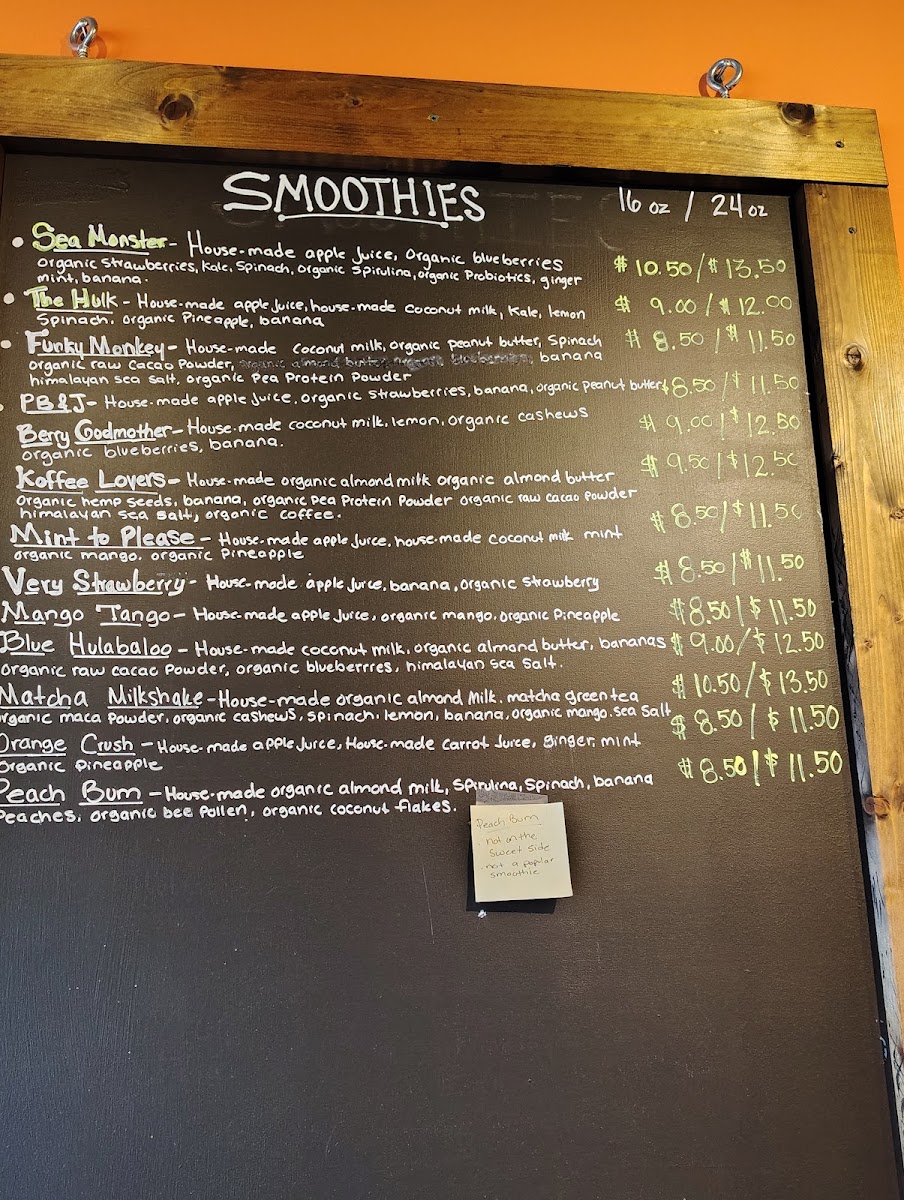 SMOOTHIES 16 oz / 24 oz
• Sea Monster - House-made apple Juice, Organic blueberries
organic strawberries, Kale, Spinach, organic Spirulina, organic Probiotics, ginger $ 10.50/$ 13.50
mint, banana.
• The Hulk - House-made apple Juice, house-made coconut milk, Kale, lemon $ 9.00 / $ 12.00
Spinach, organic Pineapple, banana
• Funky Monkey - House-made coconut milk, organic peanut butter, Spinach $ 8.50 / $ 11.50
organic raw cacao Powder, organic almond butter, organic blueberries, banana
himalayan sea salt, organic Pea Protein Powder
• PB&J - House-made apple Juice, organic strawberries, banana, organic peanut butter $8.50/$ 11.50
Berry Godmother - House-made coconut milk, lemon, organic cashews $ 9.00/$ 12.50
organic blueberries, banana.
Koffee Lovers - House-made organic almond milk organic almond butter $ 9.50/$12.50
organic hemp seeds, banana, organic pea Protein Powder organic raw cacao powder
himalayan sea salt, organic coffee.
Mint to Please - House-made apple Juice, house-made coconut milk mint $ 8.50/$11.50
organic mango, organic pineapple
Very Strawberry - House-made apple Juice, banana, organic strawberry $8.50/$11.50
Mango Tango - House-made apple Juice, organic mango, organic pineapple $8.50/$ 11.50
Blue Hulabaloo - House-made coconut milk, organic almond butter, bananas $ 9.00/$ 12.50
organic raw cacao Powder, organic blueberries, himalayan sea salt.
Matcha Milkshake - House-made organic almond Milk, matcha green tea $ 10.50/$ 13.50
organic maca Powder, organic cashews, spinach, lemon, banana, organic mango, sea salt
Orange Crush - House-made apple Juice, House-made carrot Juice, ginger, mint $ 8.50 / $ 11.50
Organic pineapple
Peach Bum - House-made organic almond milk, Spirulina, Spinach, banana $ 8.50/$ 11.50
Peaches, organic bee Pollen, organic coconut flakes.
Peach Bum
- not on the
sweet side
- not a popular
smoothie